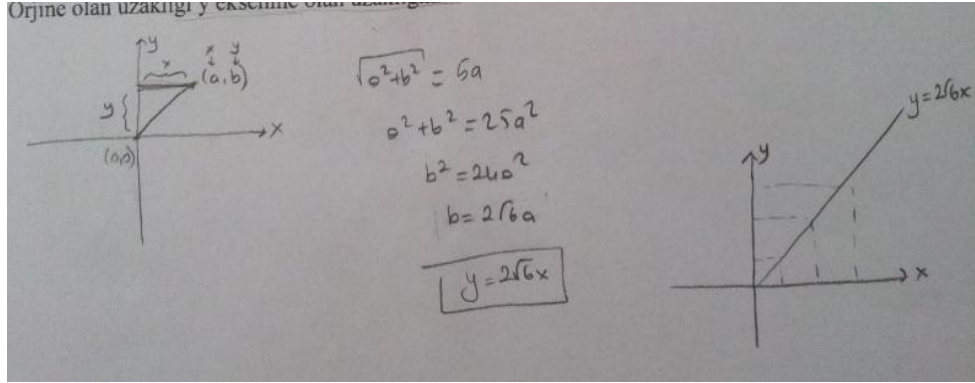 Orjine olan uzaklığı y eksenine olan
y
x y
x
(a,b)
y
x
(0,0)
√a²+b² = 5a
a²+b² = 25a²
b² = 24a²
b = 2√6a
y = 2√6x
y = 2√6x
y
x